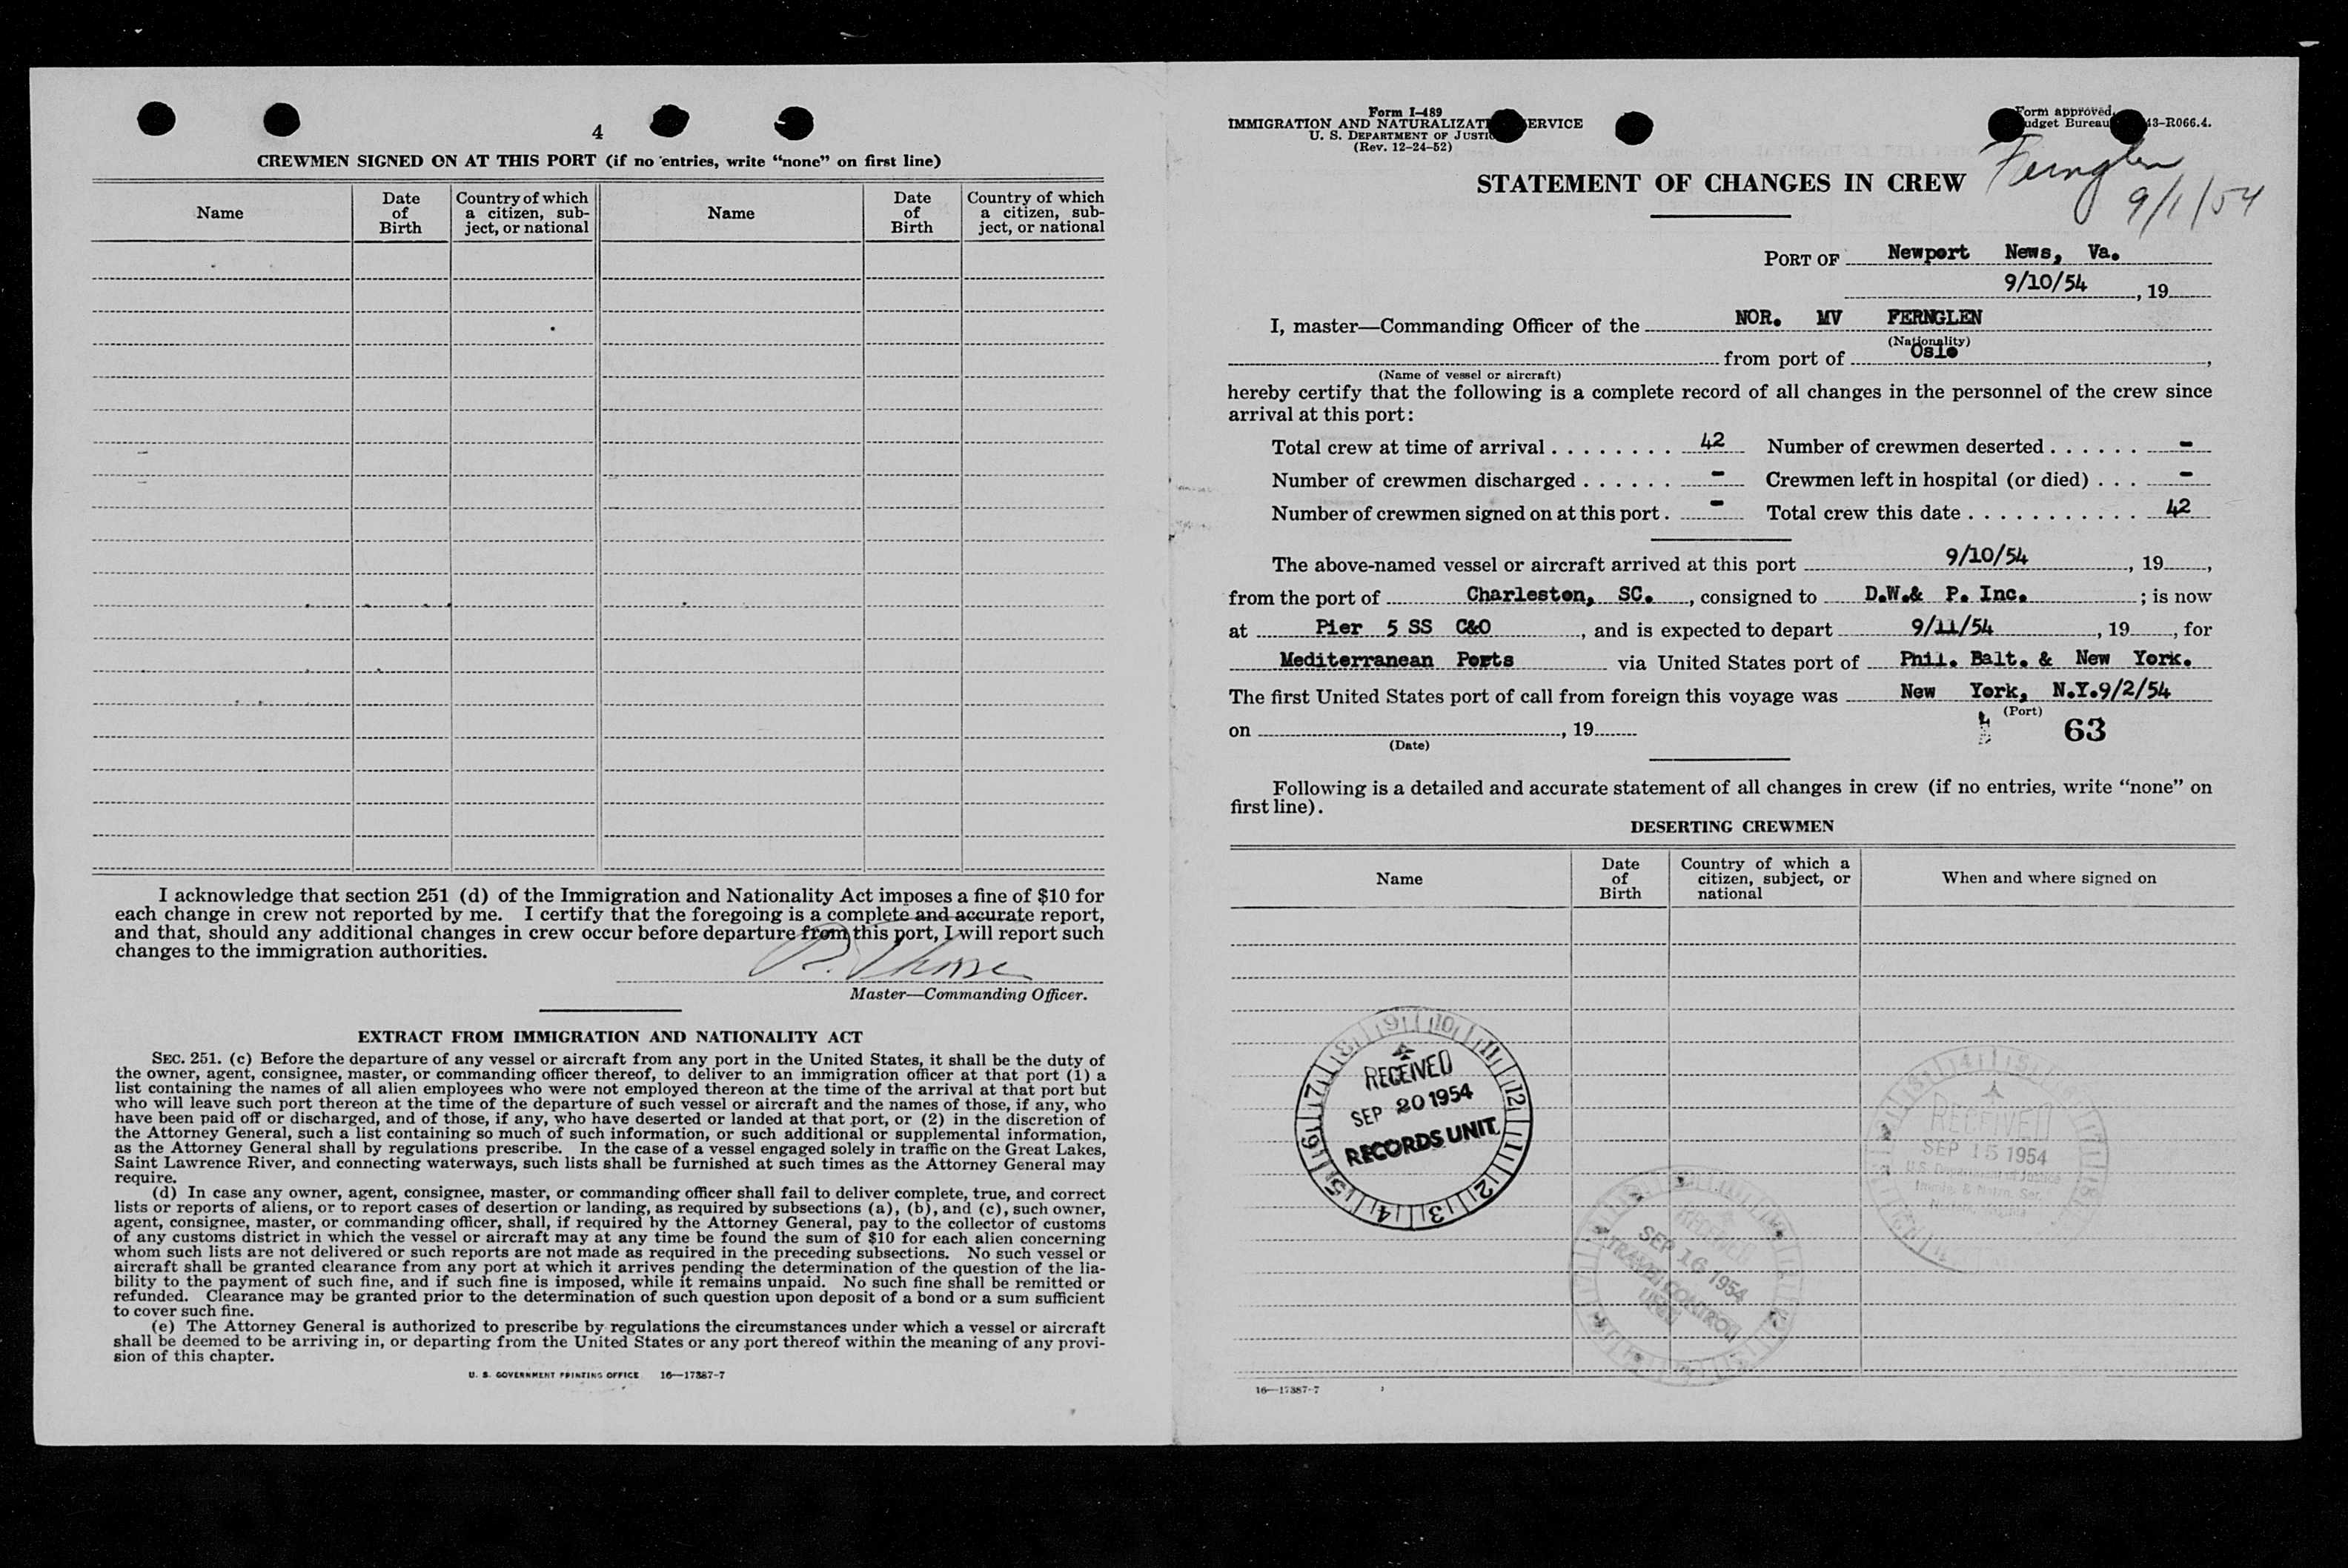 4
CREWMEN SIGNED ON AT THIS PORT (if no entries, write “none” on first line)
Name
Date of Birth
Country of which a citizen, sub-ject, or national
Name
Date of Birth
Country of which a citizen, sub-ject, or national
I acknowledge that section 251 (d) of the Immigration and Nationality Act imposes a fine of $10 for
each change in crew not reported by me. I certify that the foregoing is a complete and accurate report,
and that, should any additional changes in crew occur before departure from this port, I will report such
changes to the immigration authorities.
Master—Commanding Officer.
EXTRACT FROM IMMIGRATION AND NATIONALITY ACT
SEC. 251. (c) Before the departure of any vessel or aircraft from any port in the United States, it shall be the duty of
the owner, agent, consignee, master, or commanding officer thereof, to deliver to an immigration officer at that port (1) a
list containing the names of all alien employees who were not employed thereon at the time of the arrival at that port but
who will leave such port thereon at the time of the departure of such vessel or aircraft and the names of those, if any, who
have been paid off or discharged, and of those, if any, who have deserted or landed at that port, or (2) in the discretion of
the Attorney General, such a list containing so much of such information, or such additional or supplemental information,
as the Attorney General shall by regulations prescribe. In the case of a vessel engaged solely in traffic on the Great Lakes,
Saint Lawrence River, and connecting waterways, such lists shall be furnished at such times as the Attorney General may
require.
(d) In case any owner, agent, consignee, master, or commanding officer shall fail to deliver complete, true, and correct
lists or reports of aliens, or to report cases of desertion or landing, as required by subsections (a), (b), and (c), such owner,
agent, consignee, master, or commanding officer, shall, if required by the Attorney General, pay to the collector of customs
of any customs district in which the vessel or aircraft may at any time be found the sum of $10 for each alien concerning
whom such lists are not delivered or such reports are not made as required in the preceding subsections. No such vessel or
aircraft shall be granted clearance from any port at which it arrives pending the determination of the question of the lia-
bility to the payment of such fine, and if such fine is imposed, while it remains unpaid. No such fine shall be remitted or
refunded. Clearance may be granted prior to the determination of such question upon deposit of a bond or a sum sufficient
to cover such fine.
(e) The Attorney General is authorized to prescribe by regulations the circumstances under which a vessel or aircraft
shall be deemed to be arriving in, or departing from the United States or any port thereof within the meaning of any provi-
sion of this chapter.
U. S. GOVERNMENT PRINTING OFFICE 16—17387-7
Form I-489
IMMIGRATION AND NATURALIZATI ERVICE
U. S. DEPARTMENT OF JUSTI
(Rev. 12-24-52)
Form approved.
udget Bureau 43-R066.4.
Fernglen
9/1/54
STATEMENT OF CHANGES IN CREW
PORT OF Newport News, Va.
9/10/54, 19
I, master—Commanding Officer of the NOR. MV FERNGLEN
(Nationality)
from port of Oslo,
(Name of vessel or aircraft)
hereby certify that the following is a complete record of all changes in the personnel of the crew since
arrival at this port:
Total crew at time of arrival . . . . . . . . 42 Number of crewmen deserted . . . . . . -
Number of crewmen discharged . . . . . . - Crewmen left in hospital (or died) . . . -
Number of crewmen signed on at this port . - Total crew this date . . . . . . . . . . . 42
The above-named vessel or aircraft arrived at this port 9/10/54, 19,
from the port of Charleston, SC., consigned to D.W.& P. Inc. ; is now
at Pier 5 SS C&O, and is expected to depart 9/11/54, 19, for
Mediterranean Ports via United States port of Phil. Balt. & New York.
The first United States port of call from foreign this voyage was New York, N.Y.9/2/54
(Port)
on , 19
(Date)
63
Following is a detailed and accurate statement of all changes in crew (if no entries, write “none” on
first line).
DESERTING CREWMEN
Name
Date of Birth
Country of which a citizen, subject, or national
When and where signed on
RECEIVED
SEP 20 1954
RECORDS UNIT
RECEIVED
SEP 16 1954
TRAVEL CONTROL
UNIT
RECEIVED
SEP 15 1954
U.S. Department of Justice
Immig. & Natzn. Ser.
16—17387-7